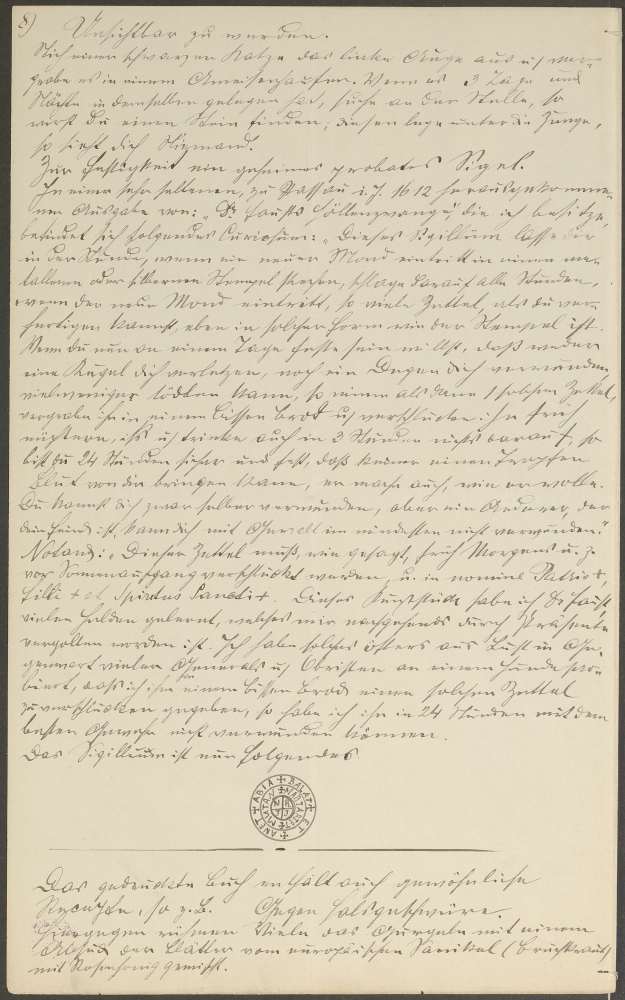 8) Unsichtbar zu werden.
Stich einer schwarzen Katze das linke Auge aus u ver-
grabe es in einem Ameisenhaufen. Wenn es 3 Tage und
Nächte in demselben gelegen hat, suche an der Stelle, so
wirst Du einen Stein finden; diesen lege unter die Zunge,
so sieht dich Niemand.
Zur Festigkeit ein geheimes probates Sigel.
In einer sehr seltenen, zu Passau i. J. 1612 herausgekomme-
nen Ausgabe von: „Dr Fausts Höllenzwange", die ich besitze,
befindet sich folgendes Curiosum: „Dieses Sigillum lasse dir
in der Stunde, wenn ein neuer Mond eintritt in einen me-
tallenen oder silbernen Stempel stechen, schlage darauf alle Stunden,
wenn der neue Mond eintritt, so viele Zettel, als du ver-
fertigen kannst, eben in solcher Form wie der Stempel ist.
Wenn du nun an einem Tage feste sein willst, daß weder
eine Kugel dich verletzen, noch ein Degen dich verwunden
vielweniger tödten kann, so nimm alsdann 1 solchen Zettel,
vergrabe ihn in einen bissen Brod u verschlucke ihn früh
nüchtern, iß u trinke auch in 3 Stunden nichts darauf, so
bist du 24 Stunden sicher und fest, daß keiner einen Tropfen
Blut von dir bringen kann, er mache auch, wie er wolle.
Du kannst dich zwar selber verwunden, aber ein Anderer, der
dein Feind ist, kann dich mit Gewalt im mindesten nicht verwunden."
Notand: „Dieser Zettel muß, wie gesagt, früh Morgens u. z.
vor Sonnenaufgang verschluckt werden, u. in nomine Patris +,
filii + et Spiritus Sancti +. Dieses Kunststück habe ich Dr Faust
vielen Helden gelernt, welches mir nachgehends durch Präsente
vergolten worden ist. Ich habe solches öfters aus Lust in Ge-
genwart vieler Generals u Obristen an einem Hunde pro-
biert, daß ich ihm einen bissen Brod einen solchen Zettel
zu verschlucken gegeben, so habe ich ihn in 24 Stunden mit dem
besten Gewehr nicht verwunden können.
Das Sigillum ist nun folgendes
+ ABIA + BALAT + ET + ANET
Das gedruckte Buch enthält auch gewöhnliche
Rezepte, so z. B. Gegen Halsgeschwüre.
Hiergegen rühmen Viele das Gurgeln mit einem
Absud der Blätter vom europäischen Sanikel (Bruchkraut)
mit Rosenhonig gemischt.